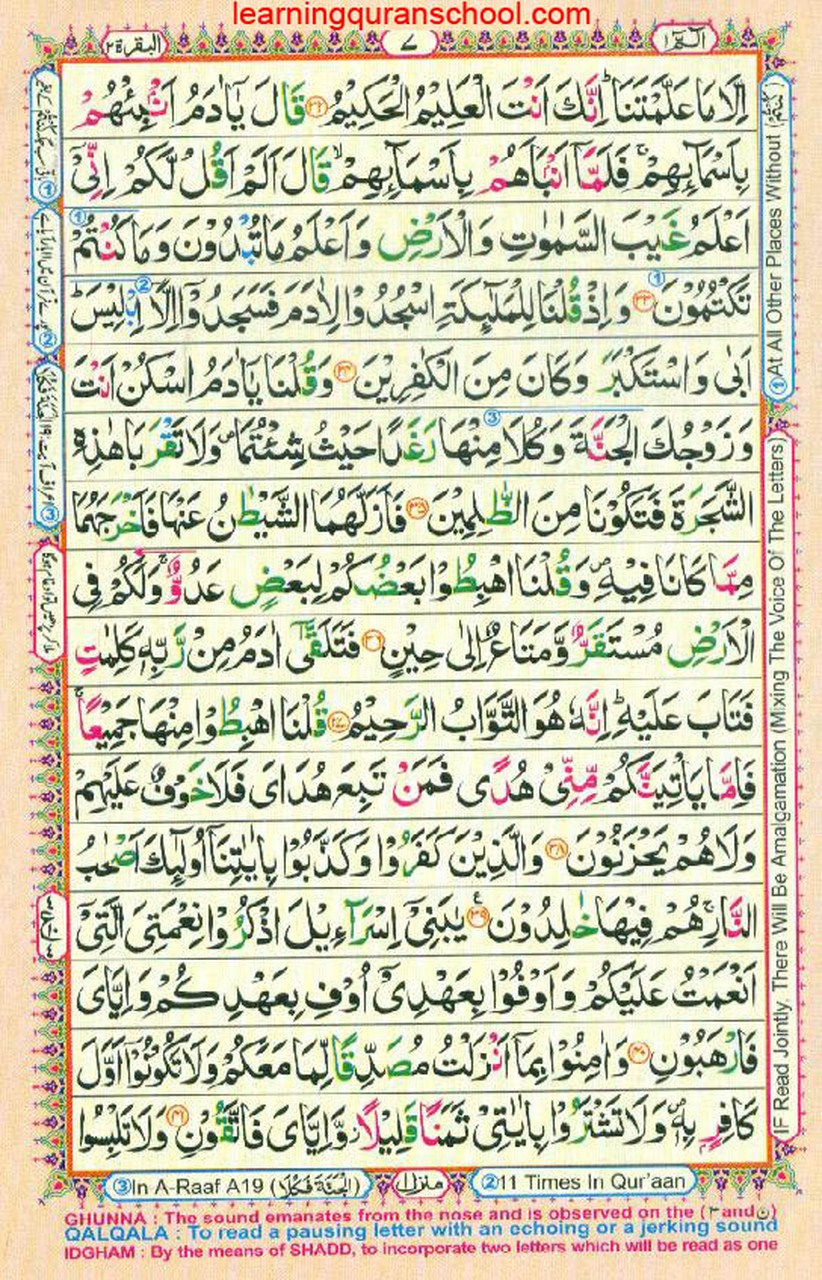 learningquranschool.com
الٓمّٓ ١
٧
البقرة ٢
اِلَّا مَا عَلَّمْتَنَا ؕ اِنَّكَ اَنْتَ الْعَلِيْمُ الْحَكِيْمُ ﴿۳۲﴾ قَالَ يٰۤاٰدَمُ اَنْۢبِئْهُمْ
بِاَسْمَآئِهِمْ ۚ فَلَمَّاۤ اَنْۢبَاَهُمْ بِاَسْمَآئِهِمْ ۙ قَالَ اَلَمْ اَقُلْ لَّكُمْ اِنِّيْۤ
اَعْلَمُ غَيْبَ السَّمٰوٰتِ وَالْاَرْضِ وَاَعْلَمُ مَا تُبْدُوْنَ وَمَا كُنْتُمْ
تَكْتُمُوْنَ ﴿۳۳﴾ وَاِذْ قُلْنَا لِلْمَلٰٓئِكَةِ اسْجُدُوْا لِاٰدَمَ فَسَجَدُوْۤا اِلَّاۤ اِبْلِيْسَ ؕ
اَبٰى وَاسْتَكْبَرَ وَكَانَ مِنَ الْكٰفِرِيْنَ ﴿۳۴﴾ وَقُلْنَا يٰۤاٰدَمُ اسْكُنْ اَنْتَ
وَزَوْجُكَ الْجَنَّةَ وَكُلَا مِنْهَا رَغَدًا حَيْثُ شِئْتُمَا ۪ وَلَا تَقْرَبَا هٰذِهِ
الشَّجَرَةَ فَتَكُوْنَا مِنَ الظّٰلِمِيْنَ ﴿۳۵﴾ فَاَزَلَّهُمَا الشَّيْطٰنُ عَنْهَا فَاَخْرَجَهُمَا
مِمَّا كَانَا فِيْهِ ۪ وَقُلْنَا اهْبِطُوْا بَعْضُكُمْ لِبَعْضٍ عَدُوٌّ ۚ وَلَكُمْ فِي
الْاَرْضِ مُسْتَقَرٌّ وَّمَتَاعٌ اِلٰى حِيْنٍ ﴿۳۶﴾ فَتَلَقّٰۤى اٰدَمُ مِنْ رَّبِّهٖ كَلِمٰتٍ
فَتَابَ عَلَيْهِ ؕ اِنَّهٗ هُوَ التَّوَّابُ الرَّحِيْمُ ﴿۳۷﴾ قُلْنَا اهْبِطُوْا مِنْهَا جَمِيْعًا ۚ
فَاِمَّا يَاْتِيَنَّكُمْ مِّنِّيْ هُدًى فَمَنْ تَبِعَ هُدَايَ فَلَا خَوْفٌ عَلَيْهِمْ
وَلَا هُمْ يَحْزَنُوْنَ ﴿۳۸﴾ وَالَّذِيْنَ كَفَرُوْا وَكَذَّبُوْا بِاٰيٰتِنَاۤ اُولٰٓئِكَ اَصْحٰبُ
النَّارِ ۚ هُمْ فِيْهَا خٰلِدُوْنَ ﴿۳۹﴾ يٰبَنِيْۤ اِسْرَآءِيْلَ اذْكُرُوْا نِعْمَتِيَ الَّتِيْۤ
اَنْعَمْتُ عَلَيْكُمْ وَاَوْفُوْا بِعَهْدِيْۤ اُوْفِ بِعَهْدِكُمْ وَاِيَّايَ
فَارْهَبُوْنِ ﴿۴۰﴾ وَاٰمِنُوْا بِمَاۤ اَنْزَلْتُ مُصَدِّقًا لِّمَا مَعَكُمْ وَلَا تَكُوْنُوْۤا اَوَّلَ
كَافِرٍۢ بِهٖ ۪ وَلَا تَشْتَرُوْا بِاٰيٰتِيْ ثَمَنًا قَلِيْلًا ؗ وَّاِيَّايَ فَاتَّقُوْنِ ﴿۴۱﴾ وَلَا تَلْبِسُوا
① At All Other Places Without (كُنْتُمْ)
IF Read Jointly, There Will Be Amalgamation (Mixing The Voice Of The Letters)
③In A-Raaf A19 (الْجَنَّةَ فَكُلَا)
منزل ١
②11 Times In Qur'aan
GHUNNA : The sound emanates from the nose and is observed on the (م and ن)
QALQALA : To read a pausing letter with an echoing or a jerking sound
IDGHAM : By the means of SHADD, to incorporate two letters which will be read as one